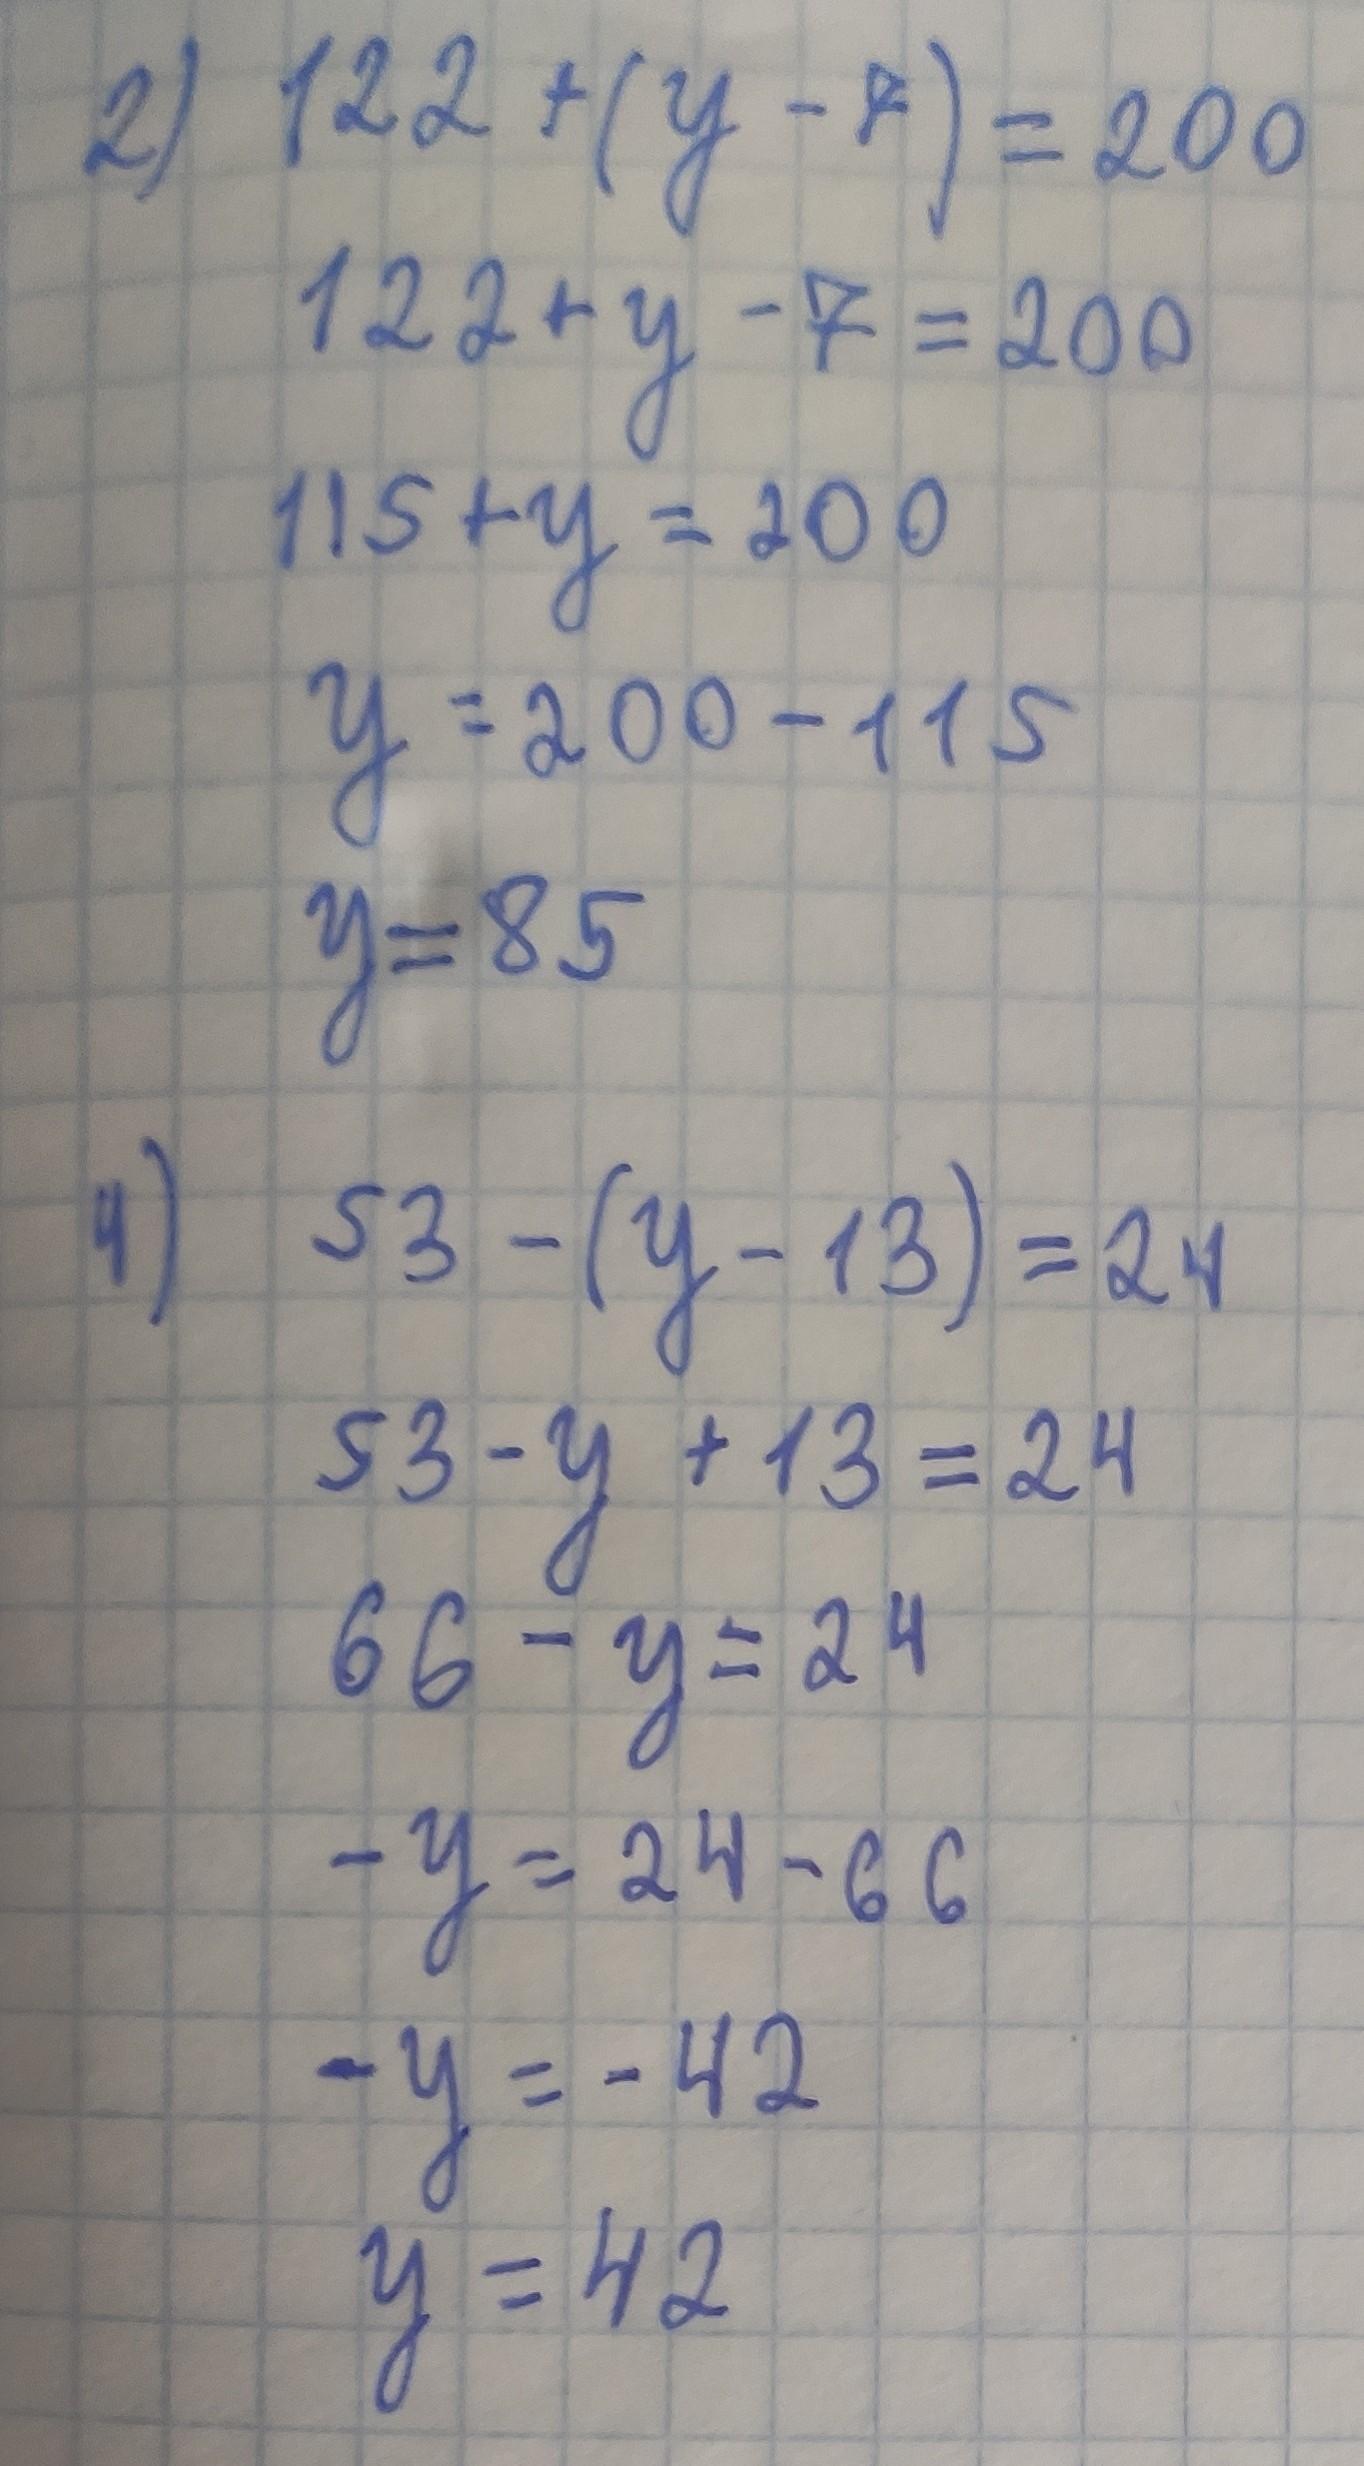 2) 122 + (y - 7) = 200
122 + y - 7 = 200
115 + y = 200
y = 200 - 115
y = 85
4) 53 - (y - 13) = 24
53 - y + 13 = 24
66 - y = 24
- y = 24 - 66
- y = - 42
y = 42